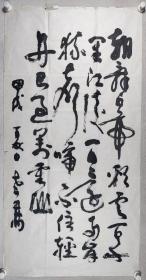 朝辞白帝彩云间千
里江陵一日还两岸
猿声啼不住轻
舟已过万重山
甲戌夏日